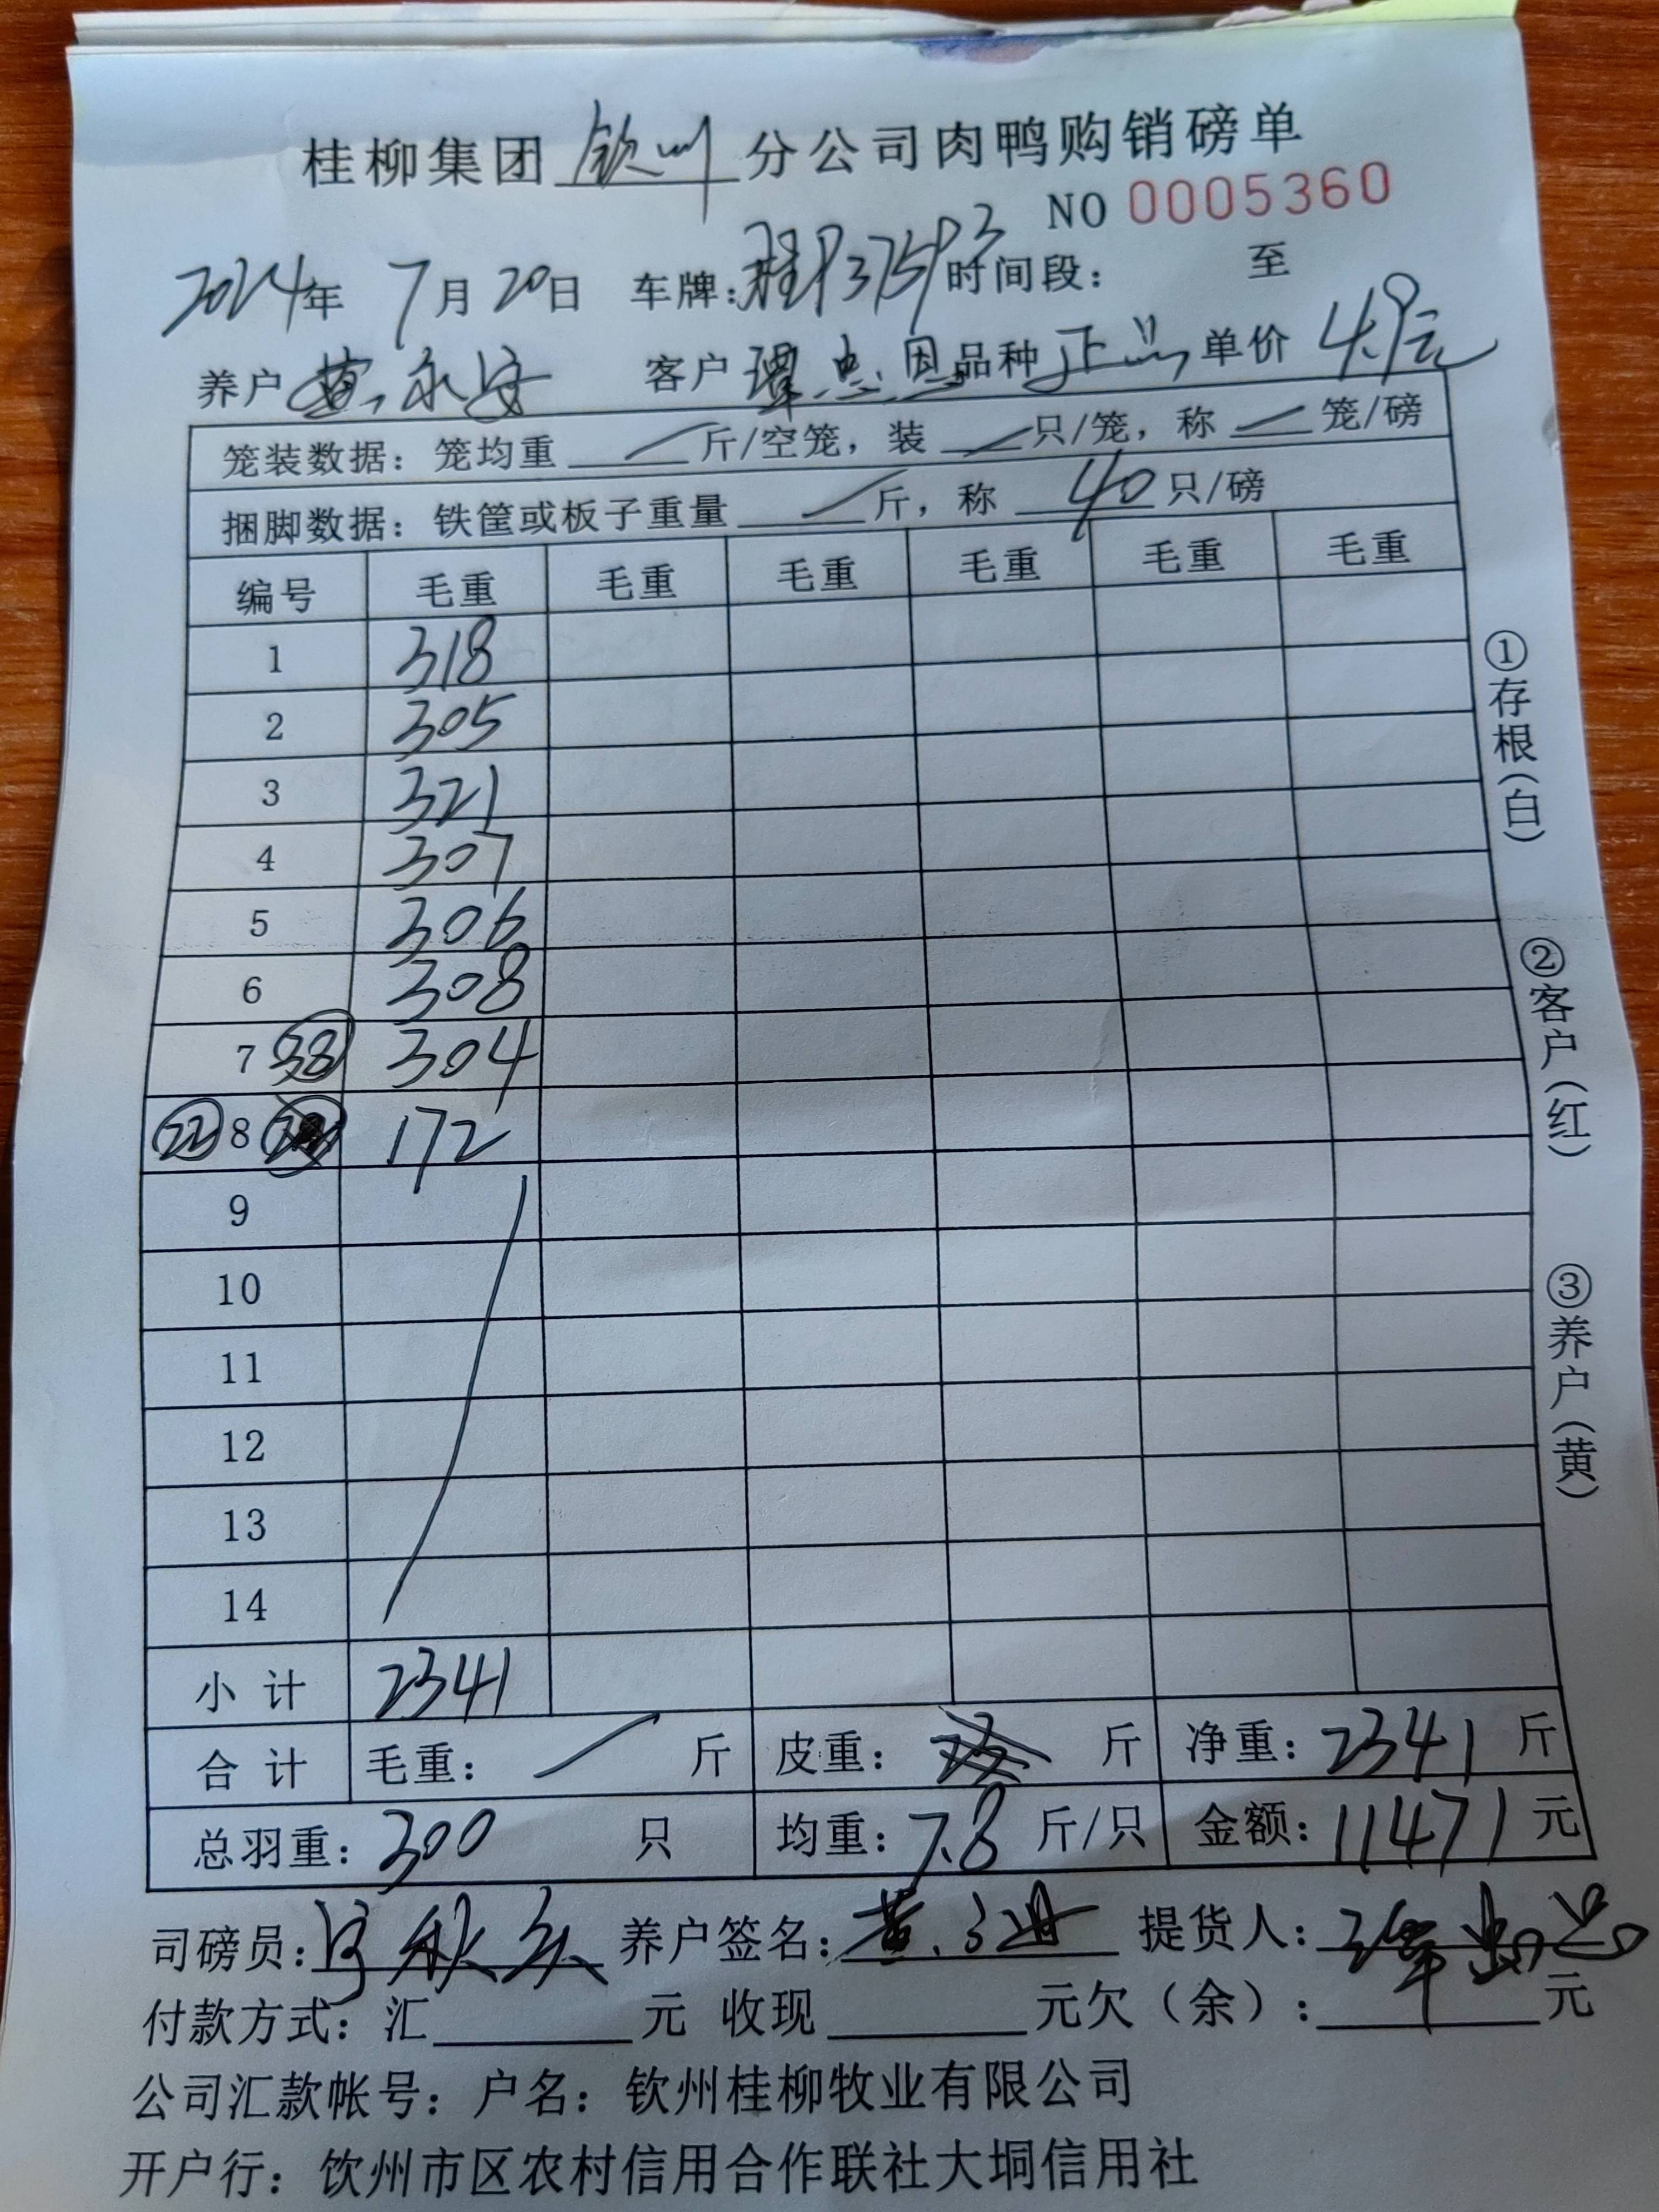 桂柳集团 钦州 分公司肉鸭购销磅单
NO 0005360
2024年 7月 20日 车牌: 桂P37593 时间段: 至
养户 黄永安 客户 覃忠因 品种 正品 单价 4.9元
笼装数据: 笼均重 斤/空笼, 装 只/笼, 称 笼/磅
捆脚数据: 铁筐或板子重量 斤, 称 40 只/磅
编号 毛重 毛重 毛重 毛重 毛重 毛重
1 318
2 305
3 321
4 307
5 306
6 308
7 38 304
22 8 172
9
10
11
12
13
14
小计 2341
合计 毛重: 斤 皮重: 斤 净重: 2341 斤
总羽重: 300 只 均重: 7.8 斤/只 金额: 11471 元
司磅员: 养户签名: 提货人:
付款方式: 汇 元 收现 元欠(余): 元
公司汇款帐号: 户名: 钦州桂柳牧业有限公司
开户行: 饮州市区农村信用合作联社大垌信用社
①存根(白)
②客户(红)
③养户(黄)